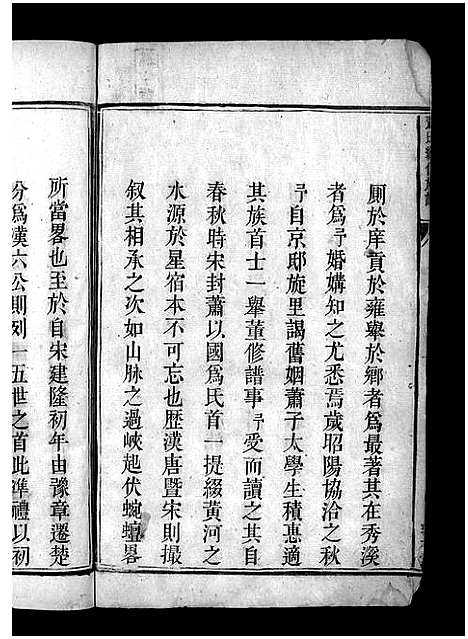 厠於庠貢於雍舉於鄉者爲最著其在秀溪
者爲予婚媾知之尤悉焉歲昭陽協洽之秋
予自京邸旋里謁舊姻蕭子太學生積惠適
其族首士一舉董修譜事予受而讀之其自
春秋時宋封蕭以國爲氏首一提綴黃河之
水源於星宿本不可忘也歷漢唐暨宋則撮
叙其相承之次如山脉之過峽起伏蜿蟺畧
所當畧也至於自宋建隆初年由豫章遷楚
分爲漢六公則列一五世之首此準禮以初